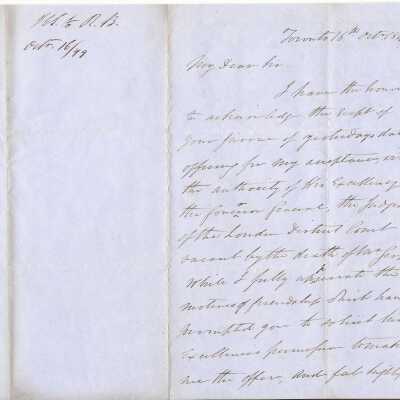 to R. B.
Octr. 16/49
Toronto 16th Octr. 184
My Dear Sir.
I have the honor
to acknowledge the receipt of
your favour of yesterdays da
offering for my acceptance,
the authority of His Excellency
the Governor General, the Judge
of the London District Court
vacant by the death of Mr
While I fully appreciate the
motives of friendship that hav
prompted you to solicit his
Excellency's permission to mak
me the offer, and feel highly